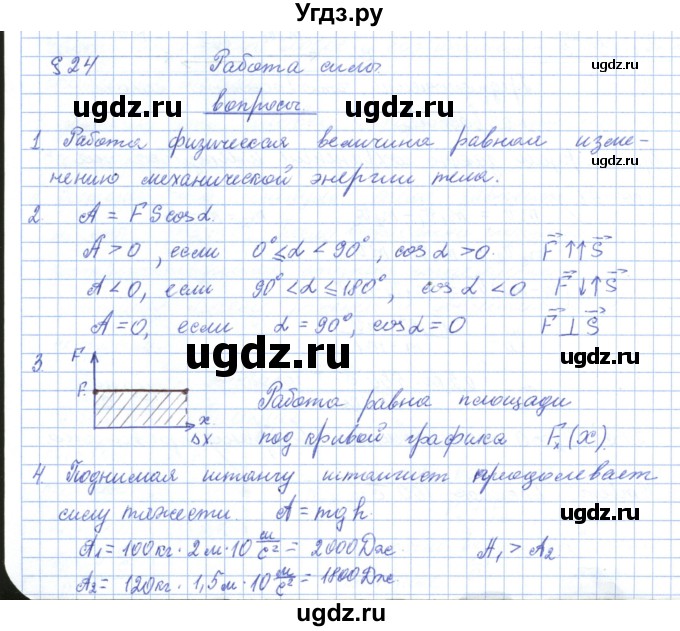 Угдз.ру
§ 24 Работа силы
ugdz.ru ugdz.ru
вопросы
ugdz.ru
1. Работа физическая величина равная изме-
нению механической энергии тела.
ugdz.ru
2 A = F S cos α.
A > 0, если 0° ≤ α < 90°, cos α > 0. F⃗ ↑↑ S⃗
A < 0, если 90° < α ≤ 180°, cos α < 0 F⃗ ↓↑ S⃗
A = 0, если α = 90°, cos α = 0 F⃗ ⊥ S⃗
ugdz.ru
3. F
F.
x
Δx
Работа равна площади
под кривой графика Fₓ(x).
4. Поднимая штангу штангист преодолевает
силу тяжести. A = mgh.
ugdz.ru
A₁ = 100кг · 2м · 10 м/с² = 2000Дж. A₁ > A₂
A₂ = 120кг · 1,5м · 10 м/с² = 1800Дж.
ugdz.ru
ugdz.ru